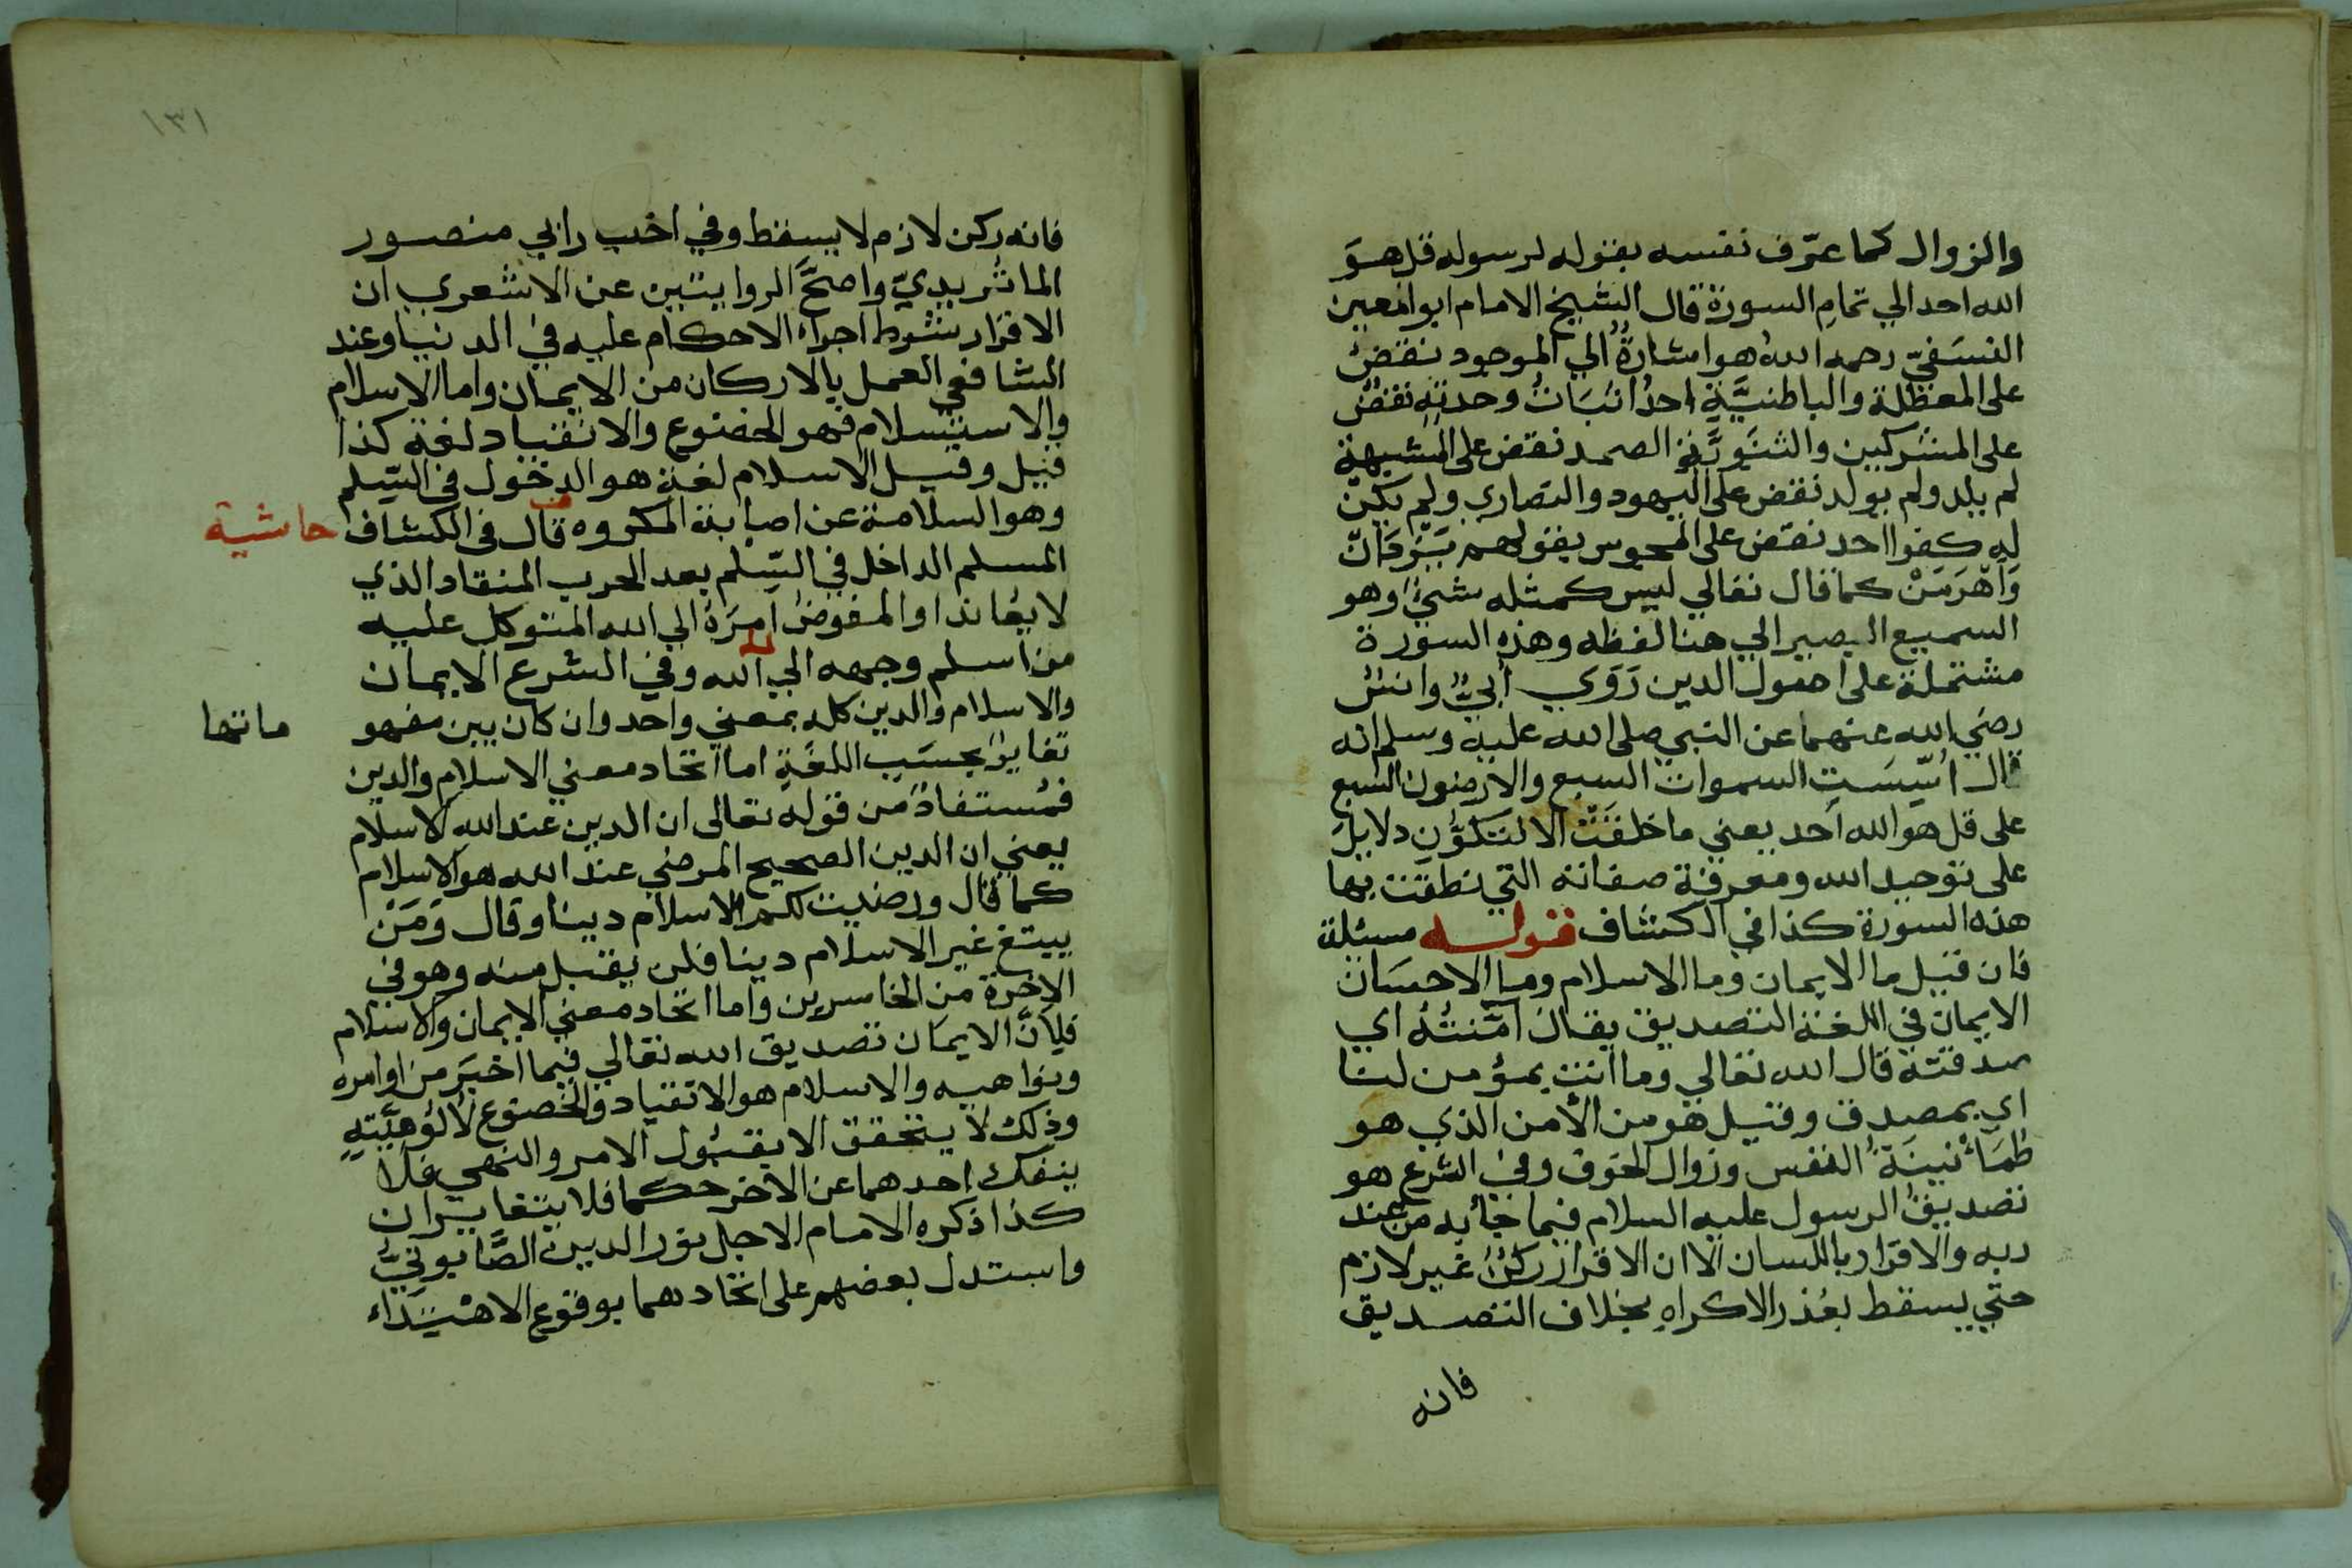 والزوال كما عرّف نفسه بقوله لرسوله قل هوَ
الله احد الي تمامِ السورة قال الشيخ الامام ابو المعين
النسَفيّ رحمه اللهُ هو اشارةٌ الي الموجود نقضٌ
على المعطلة والباطنيَّةِ احدٌ اثبَاتُ وحدتهِ نقضٌ
على المشركين والثنَويَّةِ الصمد نقض على المشبهة
لم يلد ولم يولد نقض على اليهود والنصاري ولم يكن
له كفوا احد نقض على المجوس بقولهم بيَزدَانَ
وَاَهرَمَنْ كما قال تعالي ليس كمثله شيءٌ وهو
السميع البصير الي هنا لفظه وهذه السورة
مشتملة على اصول الدين رَوَي أُبيٌّ وانسٌ
رضي الله عنهما عن النبي صلى الله عليه وسلم انه
قال اُسّسَتِ السموات السبع والارضون السبع
على قل هو الله اَحد يعني ما خلقَتْ الا لتكوُنَ دلايلَ
على توحيد الله ومعرفة صفاته التي نطقَت بها
هذه السورة كذا في الكشاف قوله مسئلة
فان قيل ما الايمان وما الاسلام وما الاحسَان
الايمان في اللغة التصديق يقال آمَنتُهُ اي
صدقته قال الله تعالي وما انت بمؤمن لنا
اي بمصدق وقيل هو من الأمن الذي هو
طمَأنينَةُ النفس وزوال الخوف وفي الشرع هو
تصديقُ الرسول عليه السلام فيما جأ به من عند
ربه والاقرار باللسان الا ان الاقرار ركنٌ غير لازم
حتي يسقط بعُذر الاكراهِ بخلاف التصديق
فانه
١٣١
فانه ركن لازم لا يسقط وفي اختيار ابي منصور
الماتُريديّ واصحَّ الروايتين عن الاشعري ان
الاقرار شرط اجراء الاحكام عليه في الدنيا وعند
الشافعي العمل بالاركان من الايمان واما الاسلام
والاستسلام فهو الخضوع والانقياد لغة كذا
قيل وقيل الاسلام لغة هو الدخول في السِّلم
وهو السلامة عن اصابة المكروه قال في الكشاف
حاشية
المسلم الداخل في السِّلم بعد الحرب المنقاد الذي
لا يعُاند او المفوض امرَهُ الي الله المتوكل عليه
من اسلم وجهه الي الله وفي الشرع الايمان
والاسلام والدين كله بمعني واحد وان كان بين مفهو
ماتها
تغايرٌ بحسَب اللغَةِ اما اتحاد معني الاسلام والدين
فمُستفادٌ من قوله تعالى ان الدين عند اللهِ الاسلام
يعني ان الدين الصحيح المرضي عند الله هو الاسلام
كما قال ورضيت لكم الاسلام دينا وقال وَمَنْ
يبتغ غير الاسلام دينا فلن يقبل منه وهو في
الاخرة من الخاسرين واما اتحاد معني الايمان والاسلام
فلِأنَّ الايمَان تصديق الله تعالي فيما اخبَر من اوامره
ونواهيه والاسلام هو الانقياد والخضوع لألُوهيَّتِهِ
وذلك لا يتحقق الا بقبُول الامر والنهي فلا
ينفك احدهما عن الاخر حكما فلا يتغايران
كذا ذكره الامام الاجل نور الدين الصَّابونيّ
واستدل بعضهم على اتحادهما بوقوع الاهْتِدَاء